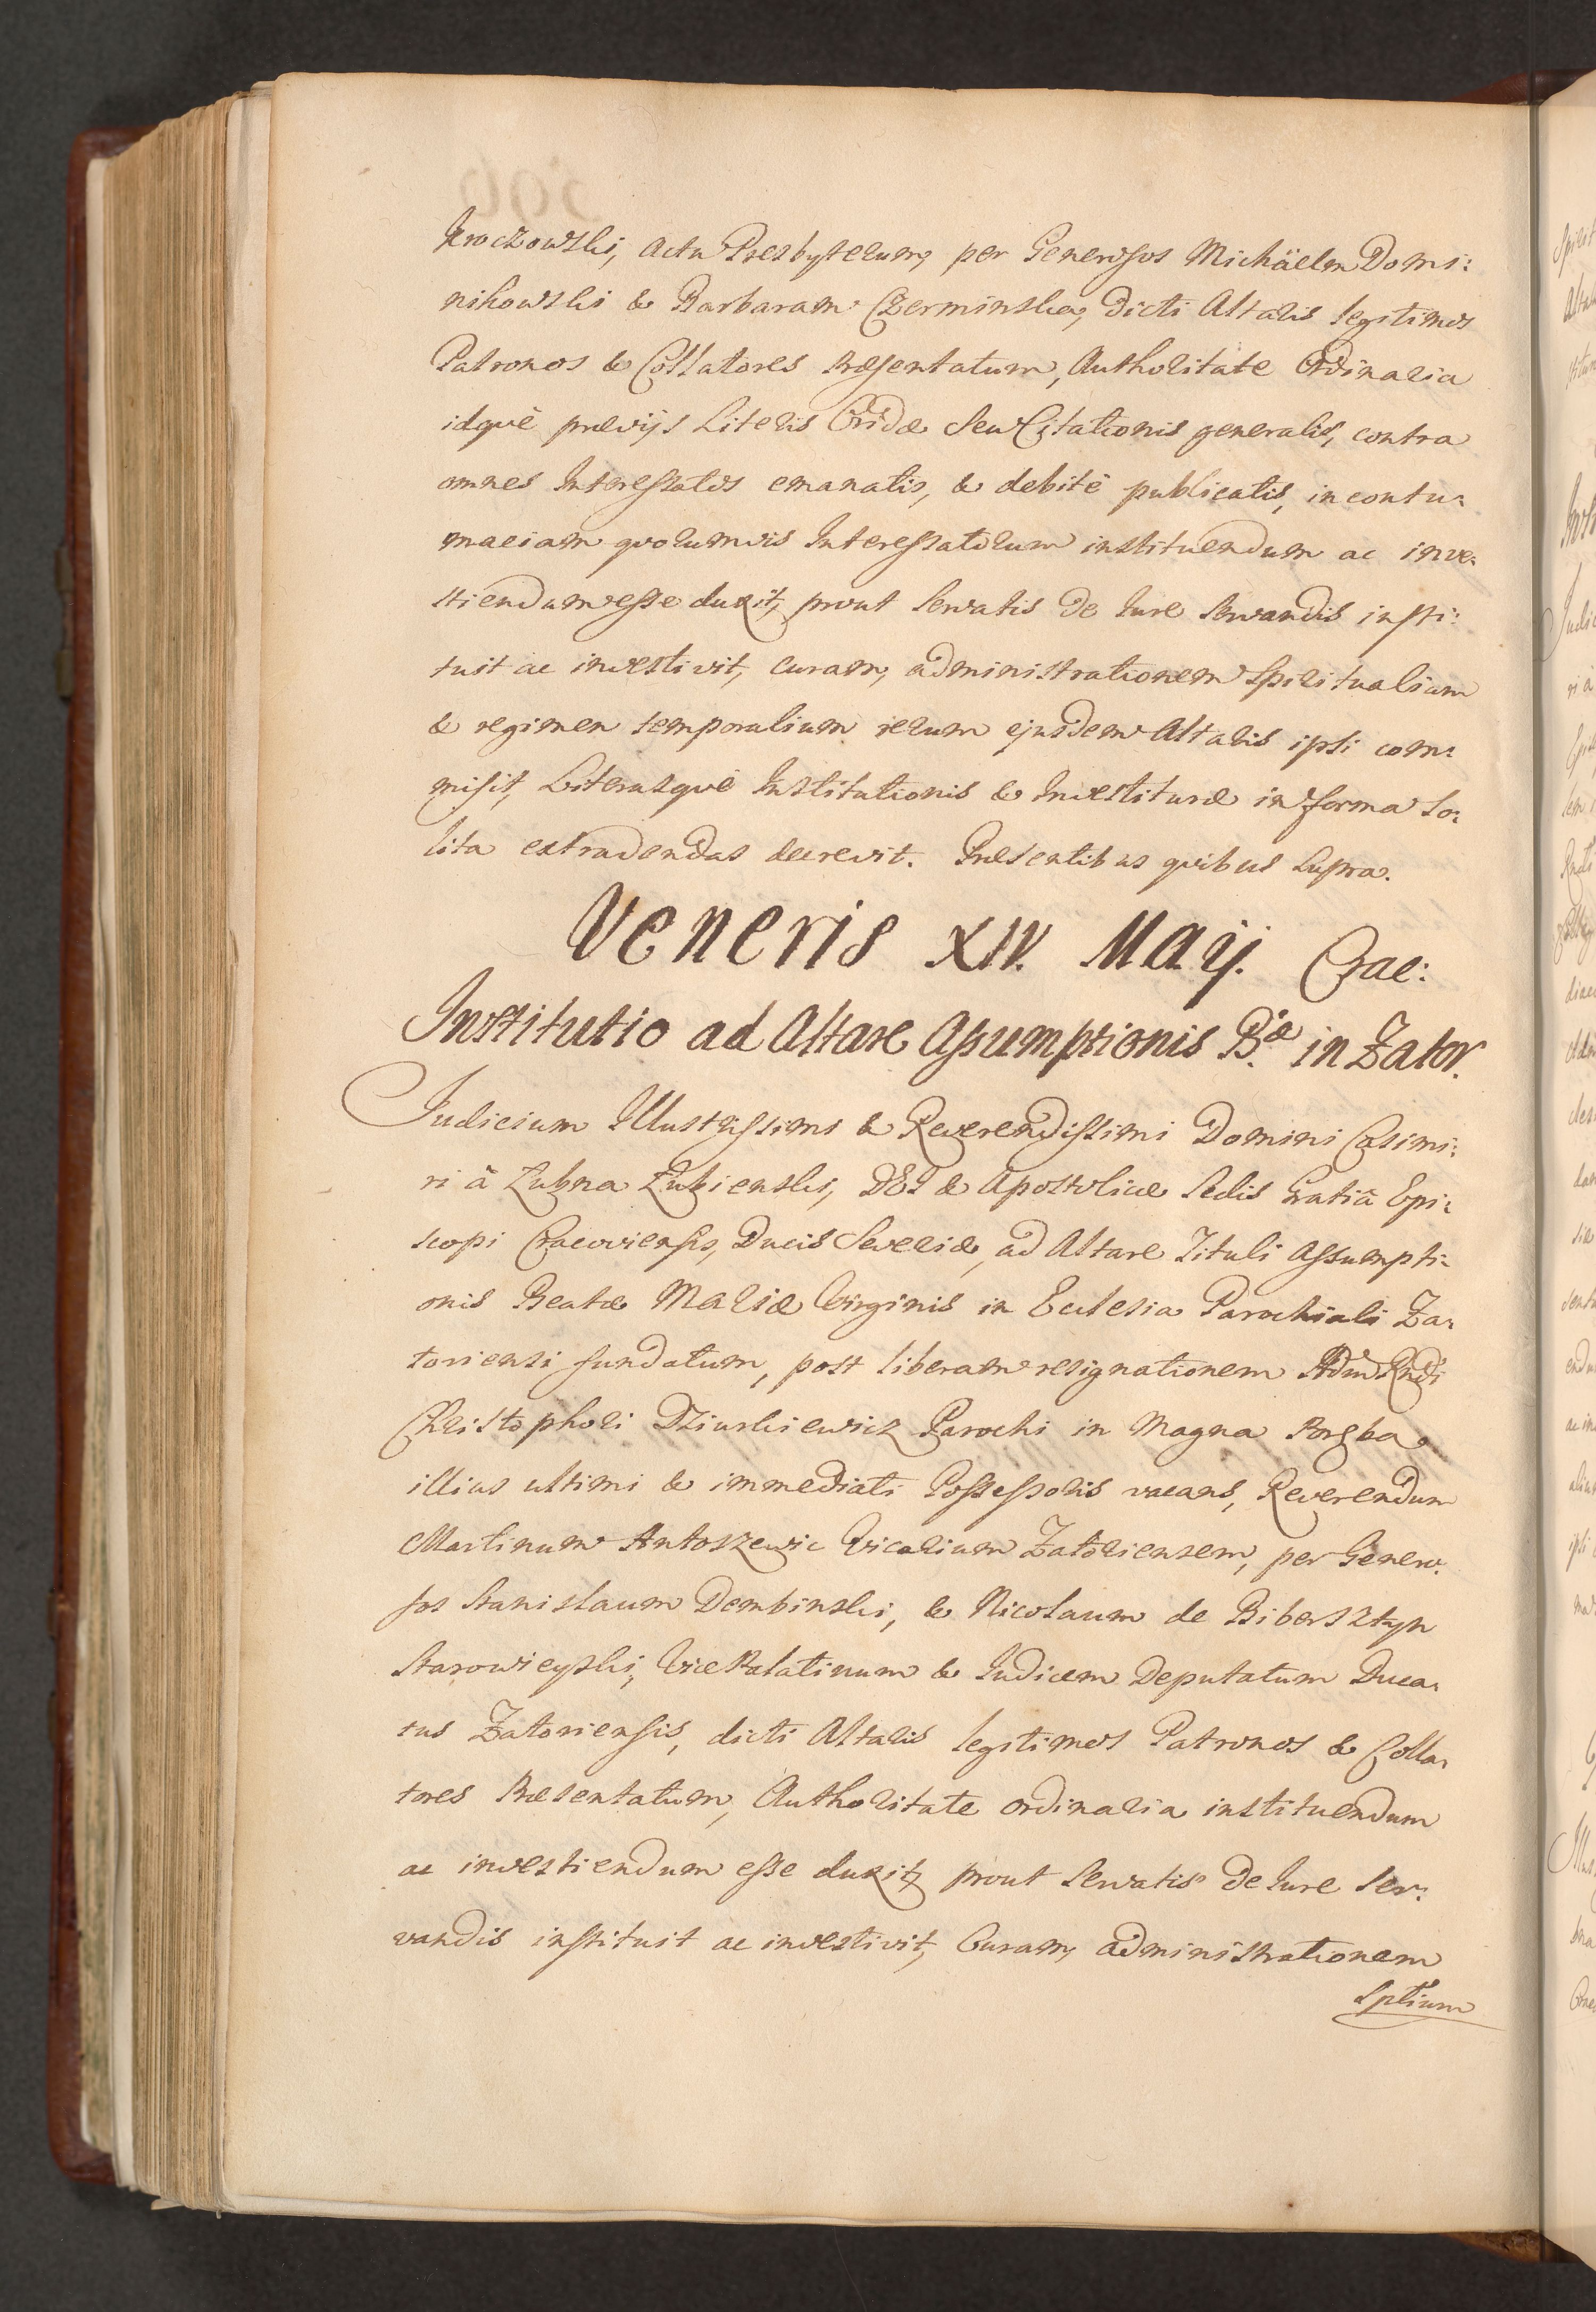 Kroczowski, Actu Presbyterum, per Generosos Michäelem Domi:
nikowski & Barbaram Czerminska, dicti Altaris legitimos
Patronos & Collatores præsentatum, Authoritate Ordinaria
idque prævijs Literis Cridæ seu Citationis generalis, contra
omnes Interessatos emanatis, & debitè publicatis, in contu:
maciam quorumvis Interessatorum instituendum ac inve:
stiendum esse duxit, prout servatis de Iure servandis insti:
tuit ac investivit, curam, administrationem Spiritualium
& regimen temporalium rerum ejusdem Altaris ipsi com:
misit, Literasquè Institutionis & Investituræ in forma so:
lita extradendas decrevit. Præsentibus quibus supra.
Veneris XIV. Maij. Crac:
Institutio ad Altare Assumptionis B.æ in Zator.
Judicium Illustrissimi & Reverendissimi Domini Casimi:
ri â Łubna Łubienski, DEI & Apostolicæ Sedis Gratiâ Epi:
scopi Cracoviensis, Ducis Severiæ, ad Altare Tituli Assumpti:
onis Beatæ Mariæ Virginis in Ecclesia Parochiali Za:
toriensi fundatum, post liberam resignationem Adm Rndi
Christophori Dziurkiewicz Parochi in Magna Poręba
illius ultimi & immediati Possessoris vacans, Reverendum
Martinum Antoszewic Vicarium Zatoriensem, per Genero:
sos Stanislaum Dembinski, & Nicolaum de Bibersztyn
Starowieyski, Vice Palatinum & Iudicem Deputatum Duca:
tus Zatoriensis, dicti Altaris legitimos Patronos & Colla:
tores Præsentatum, Authoritate ordinaria instituendum
ac investiendum esse duxit, prout servatis de Iure ser:
vandis instituit ac investivit, Curam, administrationem
Sptium